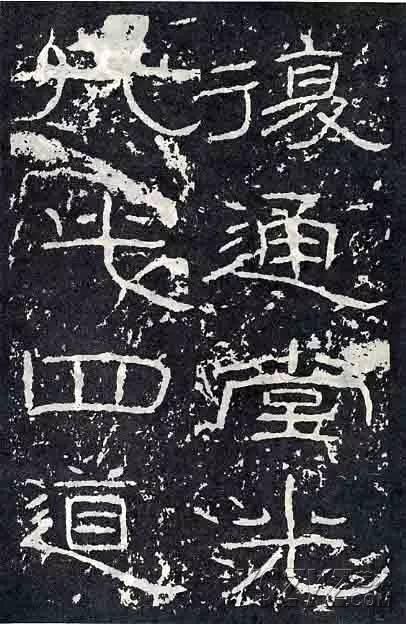 復通堂光
凡此四道